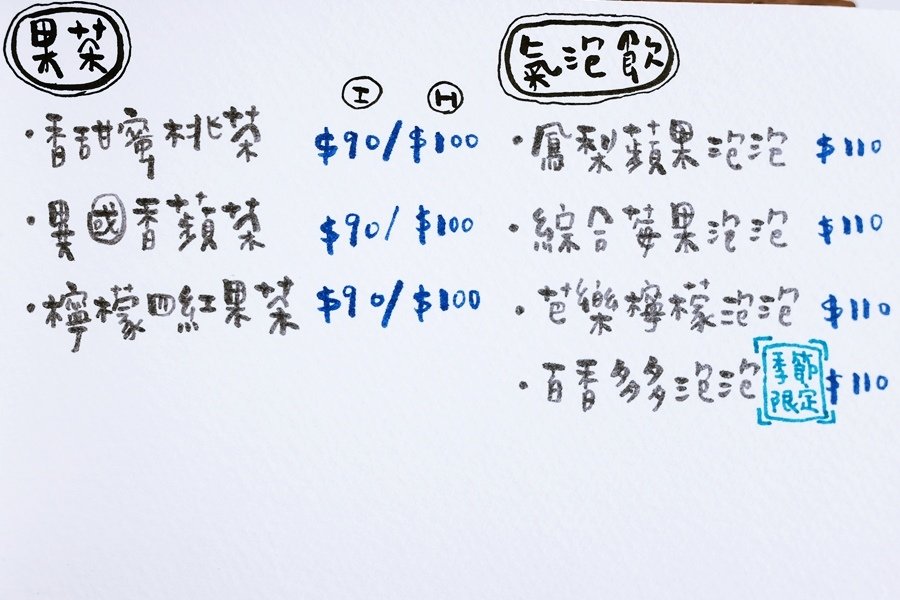 果茶
I H
·香甜蜜桃茶 $90/$100
·異國香蘋茶 $90/$100
·檸檬四紅果茶 $90/$100
氣泡飲
·鳳梨蘋果泡泡 $110
·綜合莓果泡泡 $110
·芭樂檸檬泡泡 $110
·百香多多泡泡 季節限定 $110